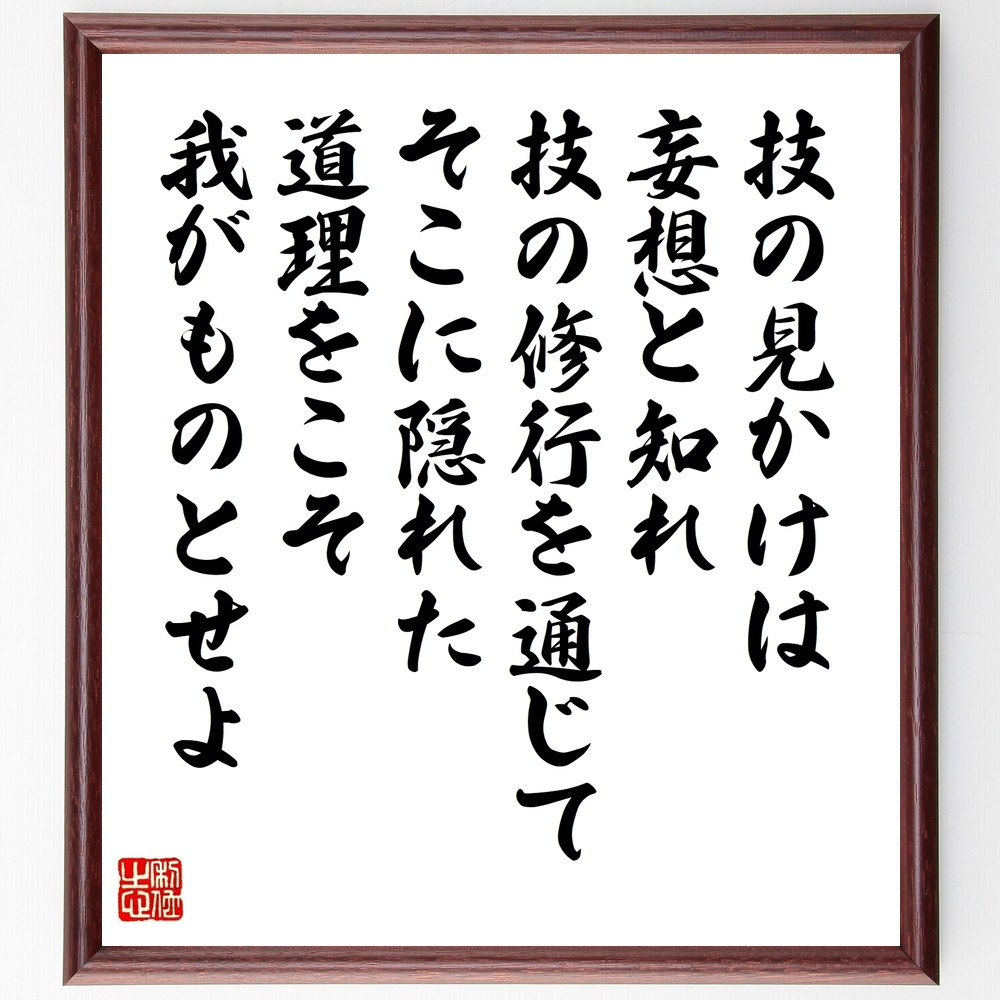 技の見かけは
妄想と知れ
技の修行を通じて
そこに隠れた
道理をこそ
我がものとせよ